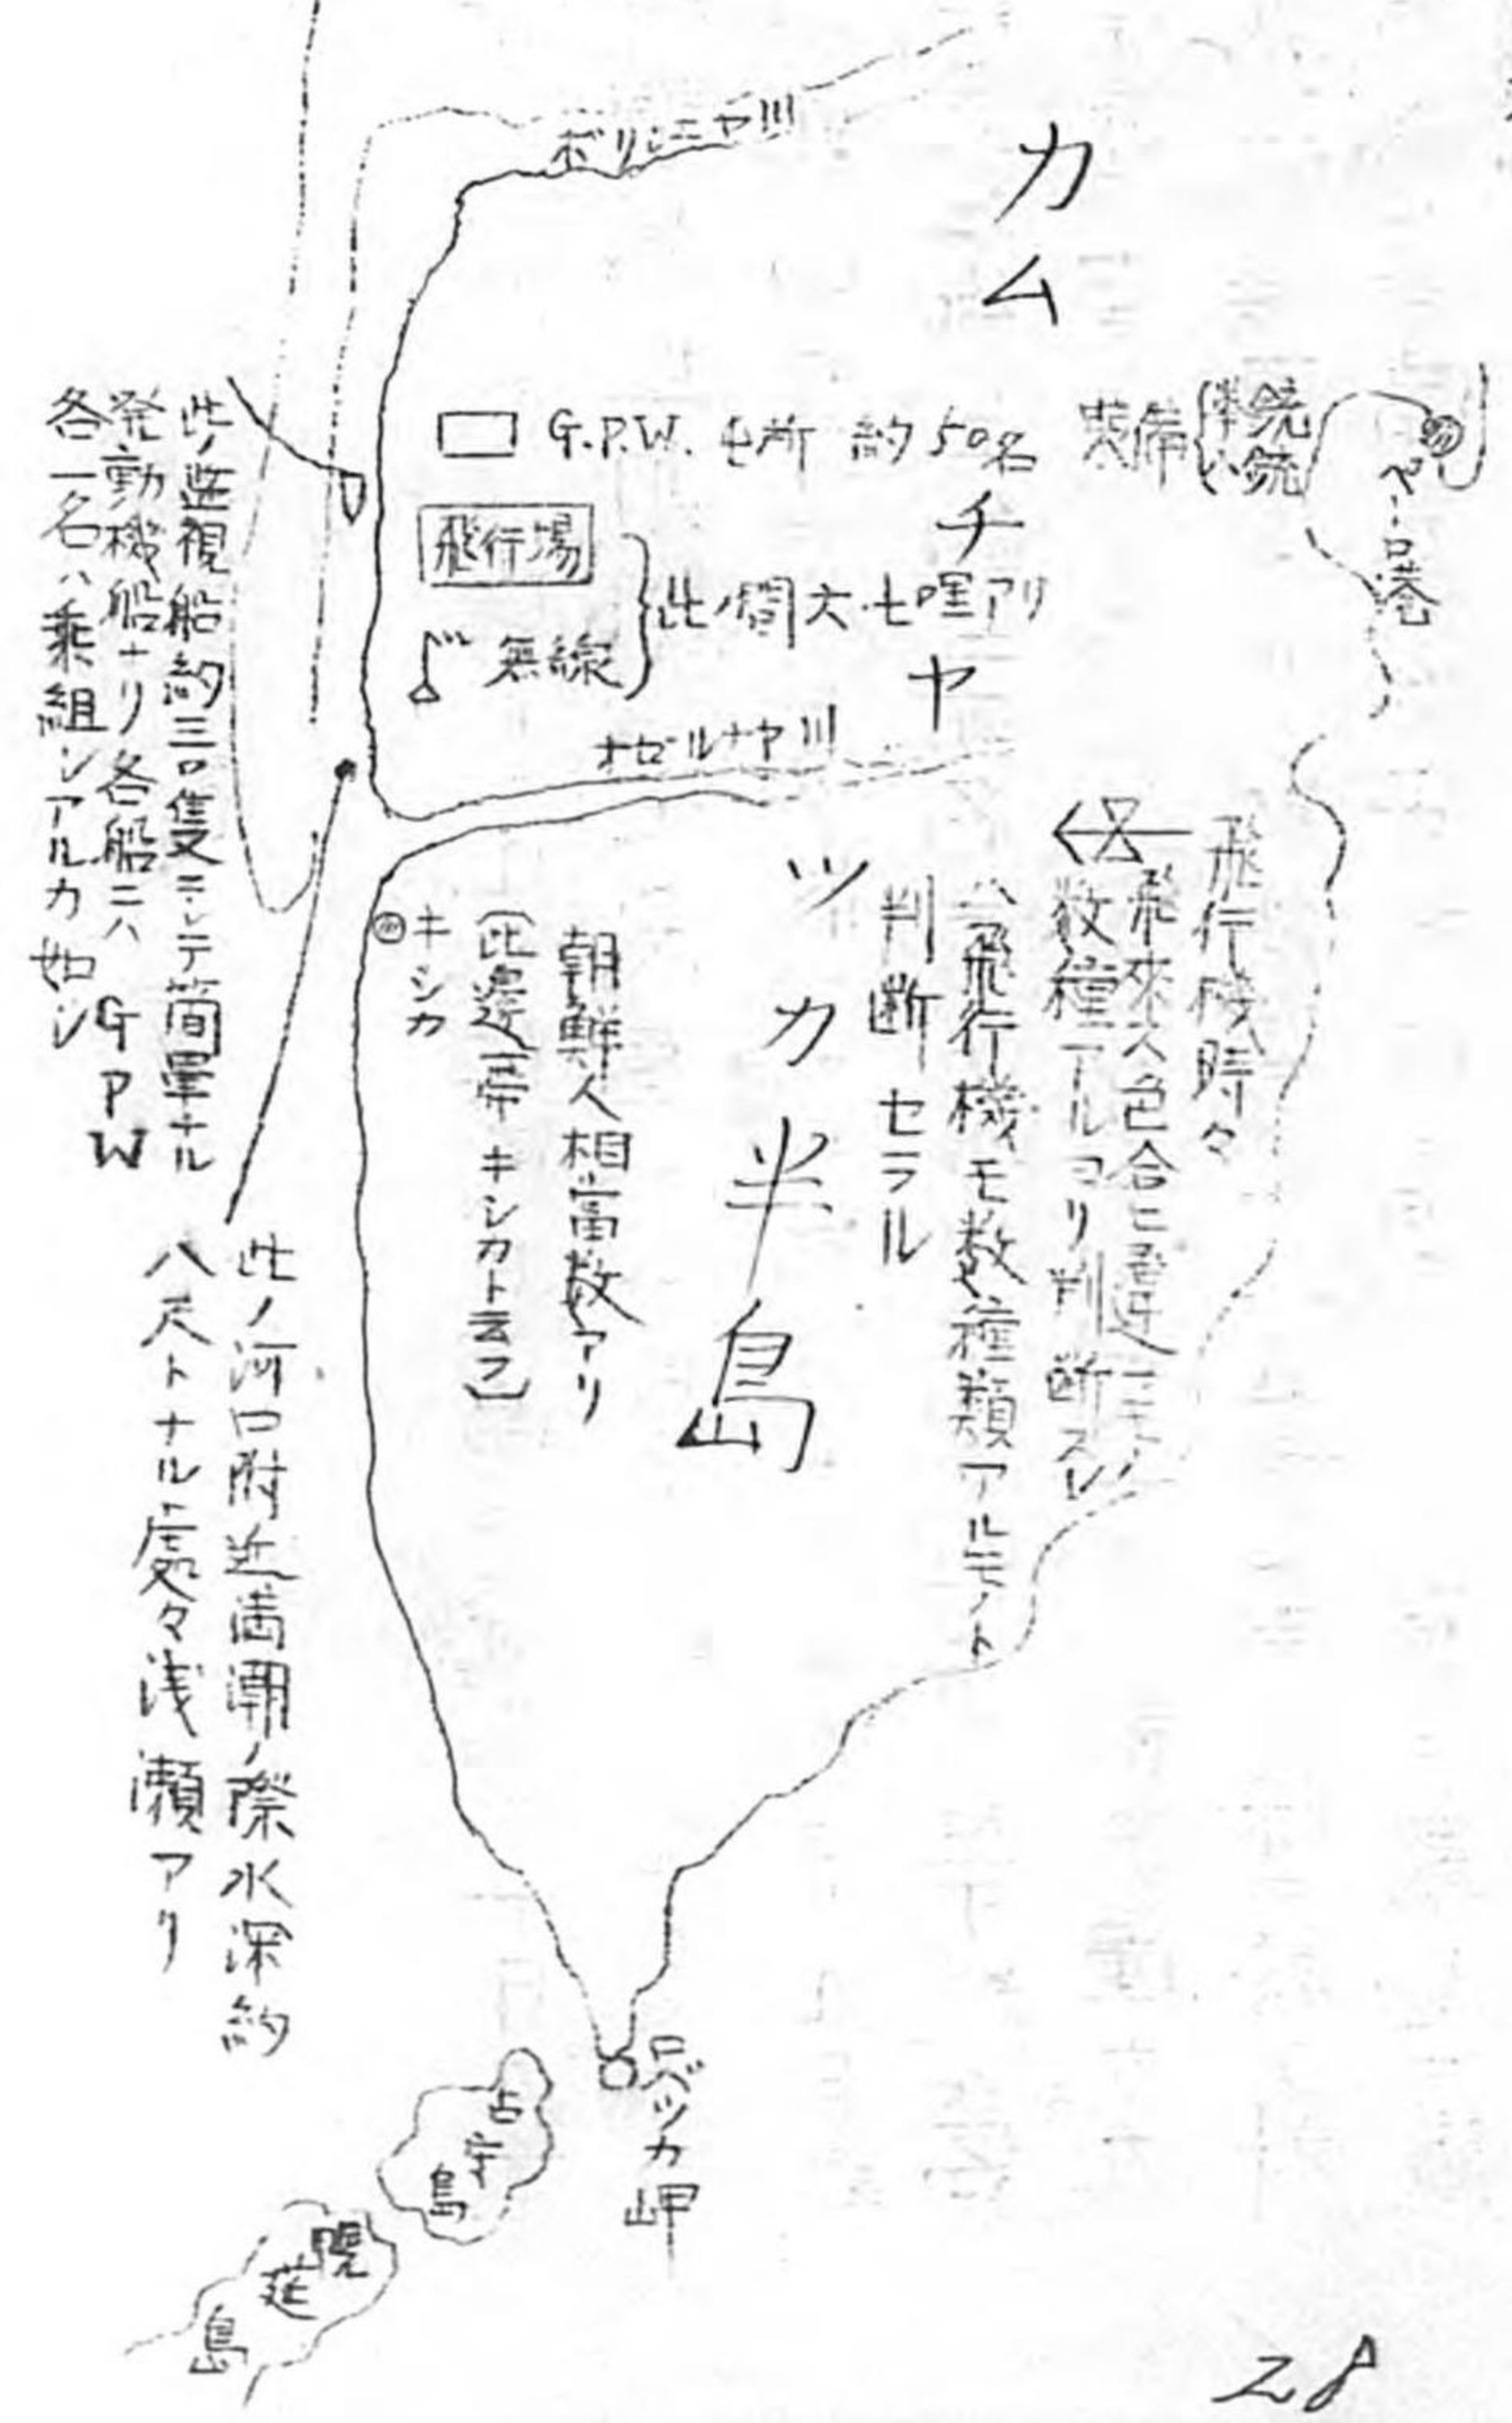 ボリシニヤ川
カムチヤツカ半島
G.P.W. 屯所 約50名 装備
拳銃
小銃
ペトロ港
飛行場
無線
此ノ間六、七哩アリ
オゼルナヤ川
飛行機時々
飛来ス色合ニ相違
数種アルヨリ判断スレ
ハ飛行機モ数種類アルモノト
判断セラル
朝鮮人相当数アリ
(此邊一帯キシカト云フ)
キシカ
此ノ監視船約三〇隻ニシテ簡単ナル
発動機船ナリ各船ニハ GPW
各一名ハ乗組シアルカ如シ
此ノ河口附近満潮ノ際水深約
八尺トナル處々浅瀬アリ
ロパツカ岬
占守島
幌筵島
28